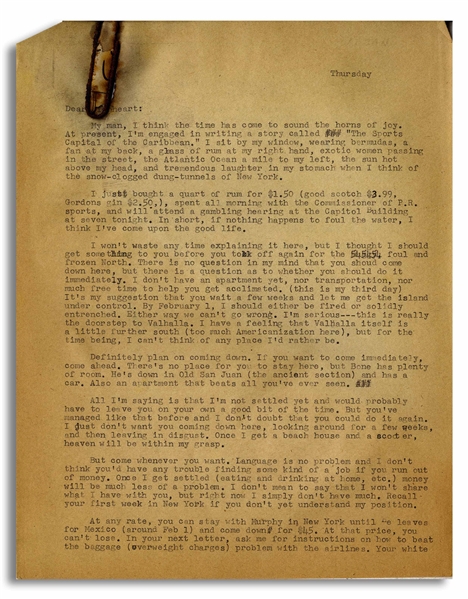 Thursday
Dear heart:
My man, I think the time has come to sound the horns of joy.
At present, I'm engaged in writing a story called "The Sports
Capital of the Caribbean." I sit by my window, wearing bermudas, a
fan at my back, a glass of rum at my right hand, exotic women passing
in the street, the Atlantic Ocean a mile to my left, the sun hot
above my head, and tremendous laughter in my stomach when I think of
the snow-clogged dung-tunnels of New York.
I just bought a quart of rum for $1.50 (good scotch $3.99,
Gordons gin $2.50,), spent all morning with the Commissioner of P.R.
sports, and will attend a gambling hearing at the Capitol Building
at seven tonight. In short, if nothing happens to foul the water, I
think I've come upon the good life.
I won't waste any time explaining it here, but I thought I should
get something to you before you took off again for the foul and
frozen North. There is no question in my mind that you shoud come
down here, but there is a question as to whether you should do it
immediately. I don't have an apartment yet, nor transportation, nor
much free time to help you get acclimated. (this is my third day)
It's my suggestion that you wait a few weeks and let me get the island
under control. By February 1, I should either be fired or solidly
entrenched. Either way we can't go wrong. I'm serious---this is really
the doorstep to Valhalla. I have a feeling that Valhalla itself is
a little further south (too much Americanization here), but for the
time being, I can't think of any place I'd rather be.
Definitely plan on coming down. If you want to come immediately,
come ahead. There's no place for you to stay here, but Bone has plenty
of room. He's down in Old San Juan (the ancient section) and has a
car. Also an apartment that beats all you've ever seen.
All I'm saying is that I'm not settled yet and would probably
have to leave you on your own a good bit of the time. But you've
managed like that before and I don't doubt that you could do it again.
I just don't want you coming down here, looking around for a few weeks,
and then leaving in disgust. Once I get a beach house and a scooter,
heaven will be within my grasp.
But come whenever you want. Language is no problem and I don't
think you'd have any trouble finding some kind of a job if you run out
of money. Once I get settled (eating and drinking at home, etc.) money
will be much less of a problem. I don't mean to say that I won't share
what I have with you, but right now I simply don't have much. Recall
your first week in New York if you don't yet understand my position.
At any rate, you can stay with Murphy in New York until he leaves
for Mexico (around Feb 1) and come down for $45. At that price, you
can't lose. In your next letter, ask me for instructions on how to beat
the baggage (overweight charges) problem with the airlines. Your white